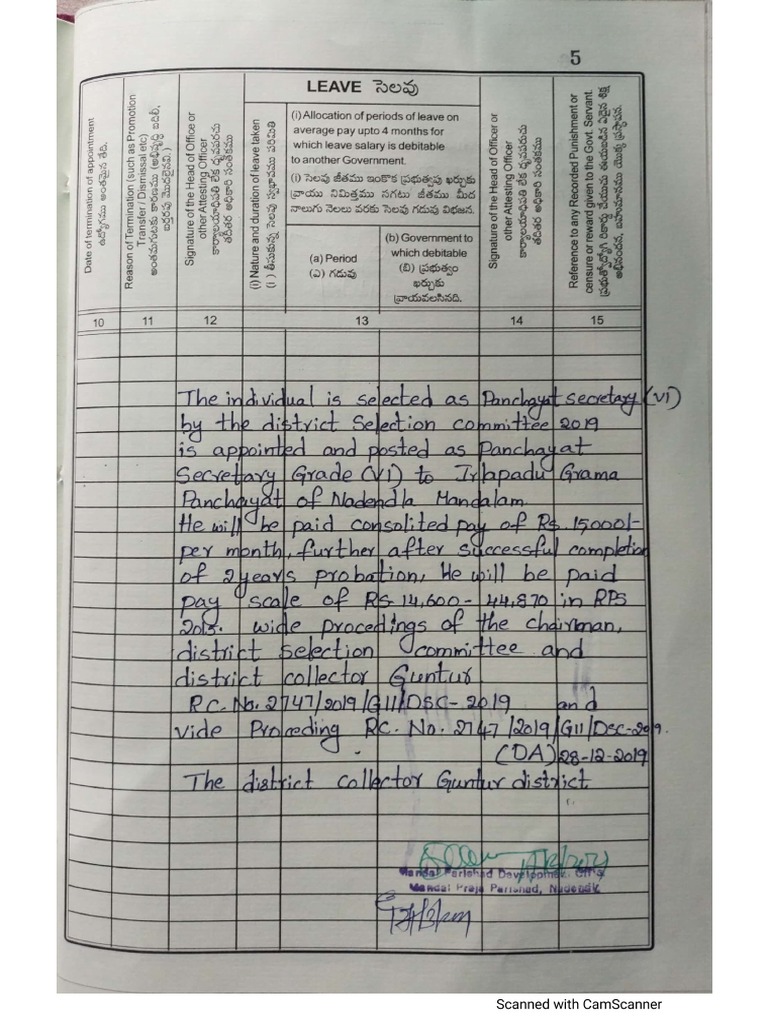 5
Date of termination of appointment
ఉద్యోగము అంతమైన తేది.
Reason of Termination (such as Promotion
Transfer / Dismissal etc)
Signature of the Head of Office or
other Attesting Officer
(i) Nature and duration of leave taken
LEAVE సెలవు
(i) Allocation of periods of leave on
average pay upto 4 months for
which leave salary is debitable
to another Government.
(i) సెలవు జీతము ఇంకొక ప్రభుత్వపు ఖర్చుకు
వ్రాయు నిమిత్తము సగటు జీతము మీద
నాలుగు నెలలు వరకు సెలవు గడువు విభజన.
(a) Period
(ఎ) గడువు
(b) Government to
which debitable
(బి) ప్రభుత్వం
ఖర్చుకు
వ్రాయవలసినది.
Signature of the Head of Officer or
other Attesting Officer
Reference to any Recorded Punishment or
censure or reward given to the Govt. Servant.
10 11 12 13 14 15
The individual is selected as Panchayat secretary (VI)
by the district Selection committee 2019
is appointed and posted as Panchayat
Secretary Grade (VI) to Irlapadu Grama
Panchayat of Nadendla Mandalam
He will be paid consolited pay of Rs. 15000/-
per month, further after successful completion
of 2 years probation, He will be paid
pay scale of Rs 14,600 - 44,870 in RPS
2015. wide procedings of the chairman,
district selection committee and
district collector Guntur
RC. No. 2747/2019/G11/DSC-2019 and
vide Proceding RC. No. 2747/2019/G11/Dsc-2019.
(DA) 28-12-2019
The district collector Guntur district
Mandal Parishad Development Officer
Mandal Praja Parishad, Nadendla
Scanned with CamScanner